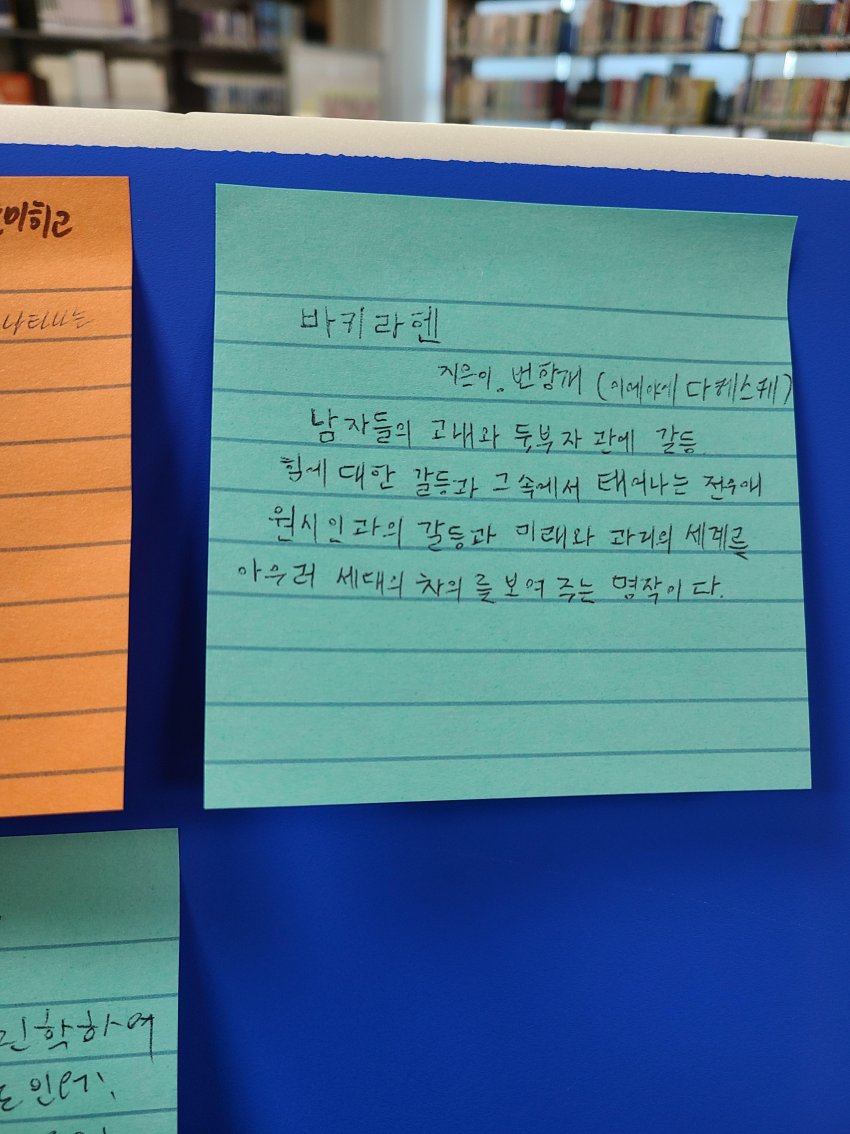 바키라헨
지은이. 번항개 (이에야에 다케스케)
남자들의 고내와 둣부자 관에 갈등
힘에 대한 갈등과 그 속에서 태어나는 전우애
원시인과의 갈등과 미래와 과거의 세계를
아우러 세대의 차의를 보여 주는 명작이다.
나타나는
학하여